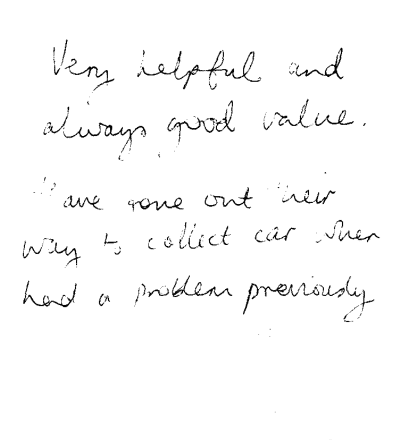 Very helpful and
always good value.
Have gone out their
way to collect car when
had a problem previously